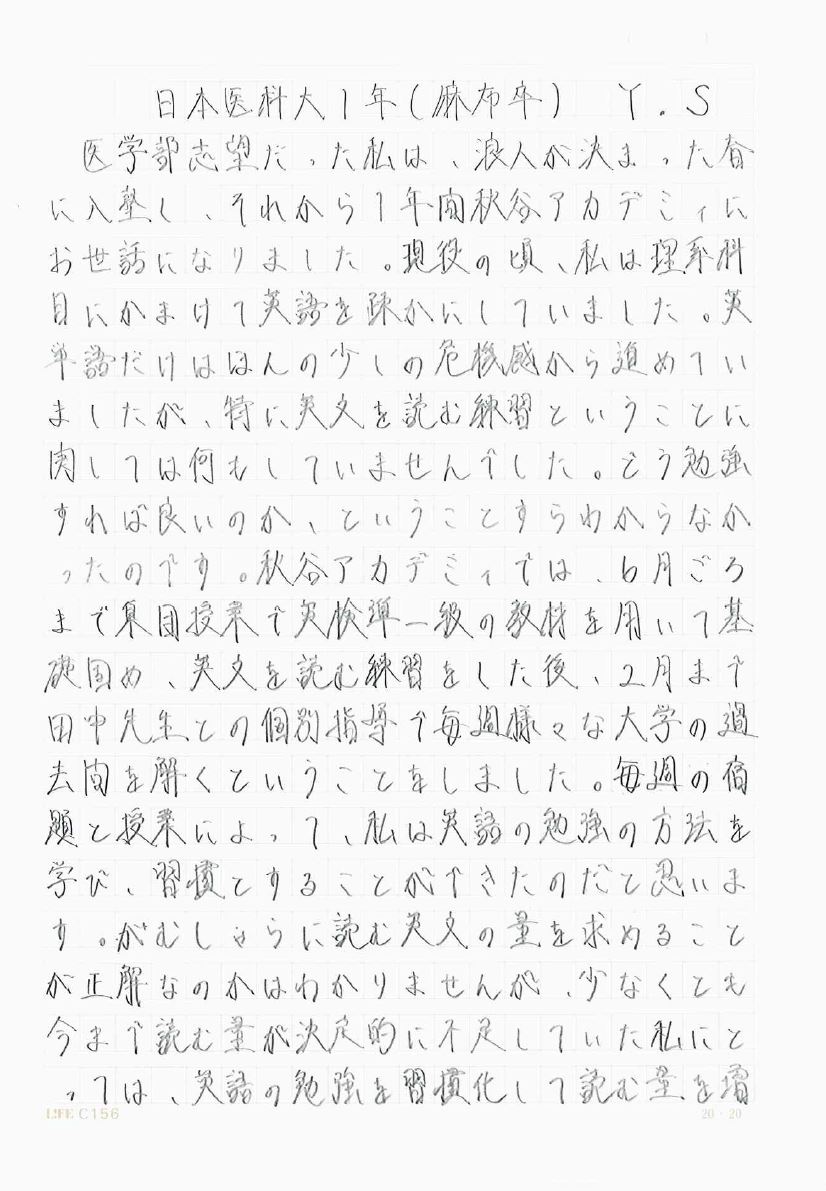 日本医科大1年(麻布卒) Y.S
医学部志望だった私は、浪人が決まった春
に入塾し、それから1年間秋谷アカデミィに
お世話になりました。現役の頃、私は理系科
目にかまけて英語を疎かにしていました。英
単語だけはほんの少しの危機感から進めてい
ましたが、特に英文を読む練習ということに
関しては何もしていませんでした。どう勉強
すれば良いのか、ということすらわからなか
ったのです。秋谷アカデミィでは、6月ごろ
まで集団授業で英検準一級の教材を用いて基
礎固め、英文を読む練習をした後、2月まで
田中先生との個別指導で毎週様々な大学の過
去問を解くということをしました。毎週の宿
題と授業によって、私は英語の勉強の方法を
学び、習慣とすることができたのだと思いま
す。がむしゃらに読む英文の量を求めること
が正解なのかはわかりませんが、少なくとも
今まで読む量が決定的に不足していた私にと
っては、英語の勉強を習慣化して読む量を増
LIFE C156 20・20